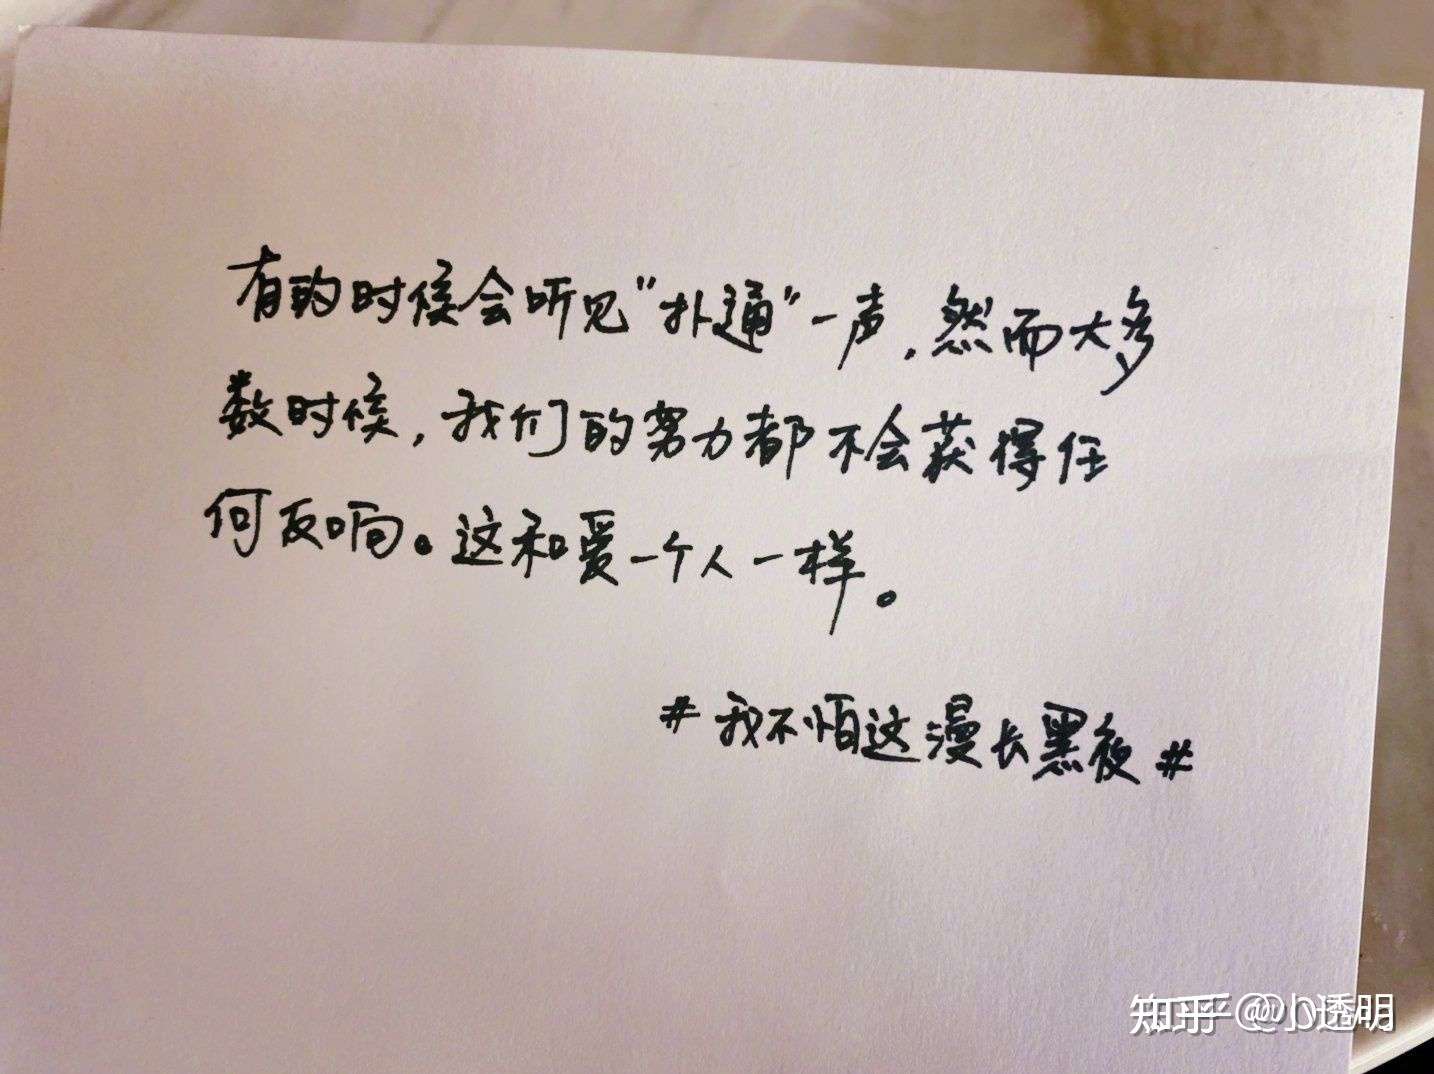 有的时候会听见"扑通"一声，然而大多
数时候，我们的努力都不会获得任
何反响。这和爱一个人一样。
#我不怕这漫长黑夜#
知乎 @小透明